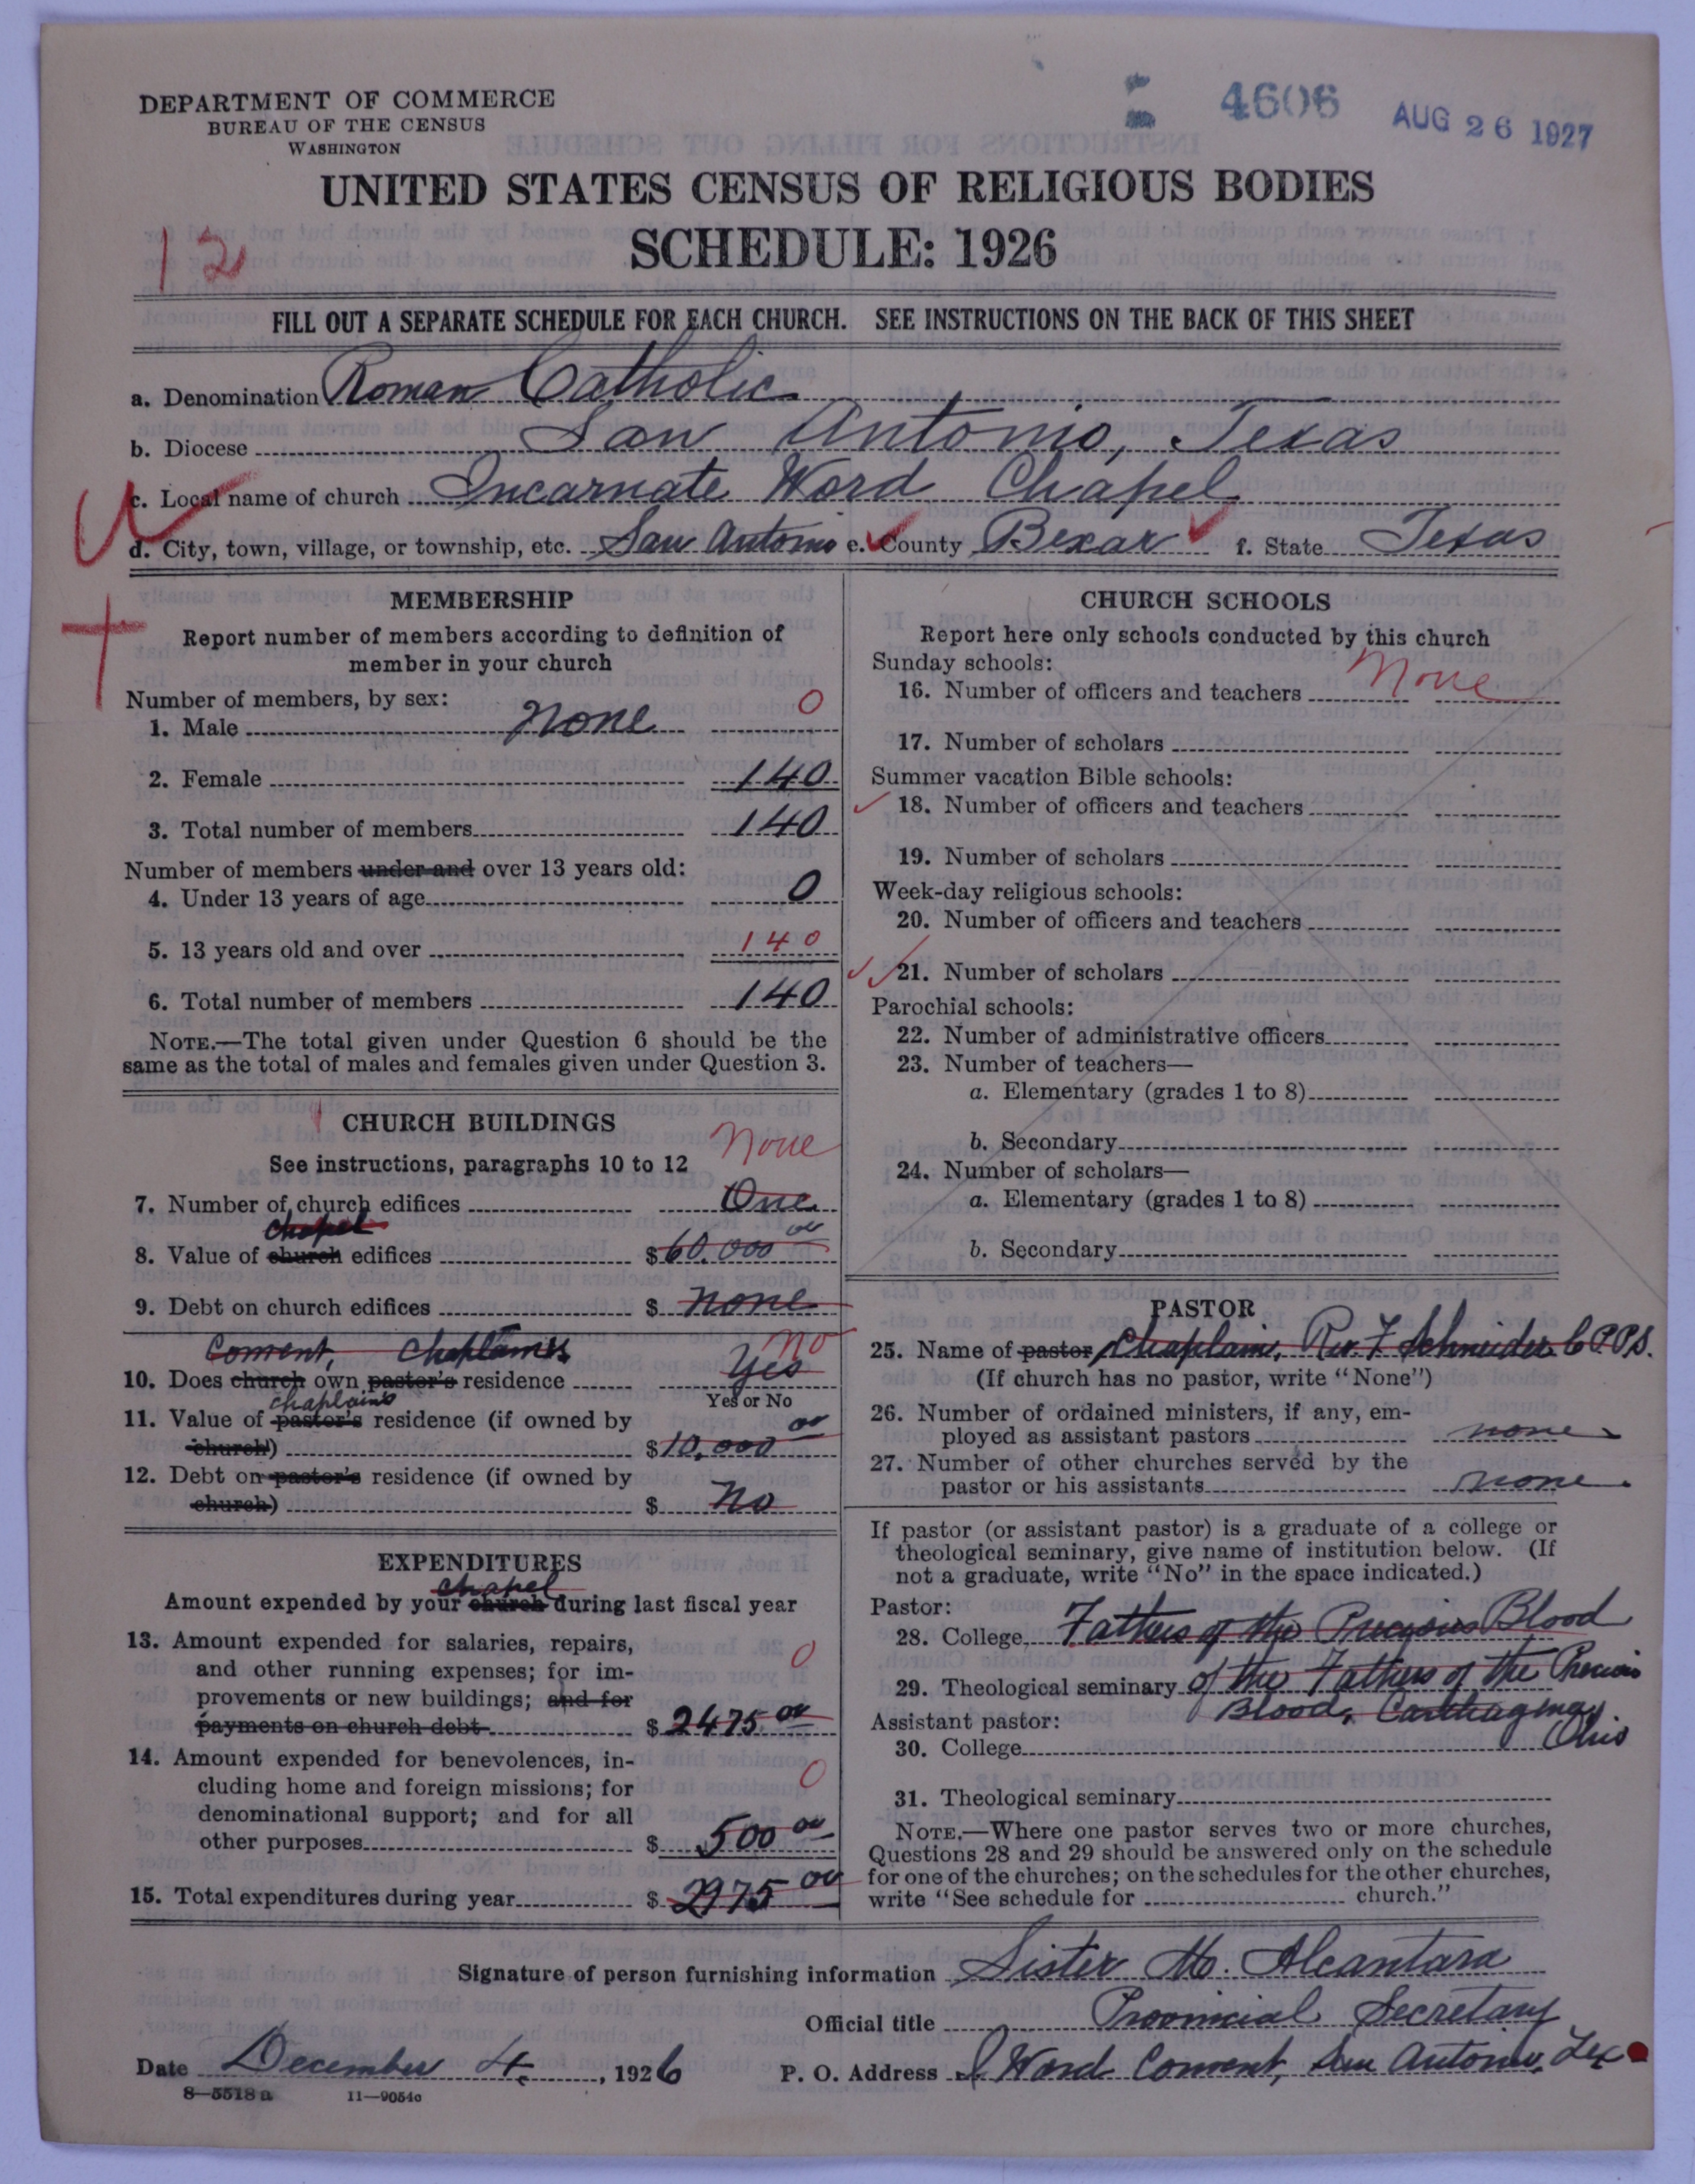 4606 AUG 26 1927
DEPARTMENT OF COMMERCE
BUREAU OF THE CENSUS
WASHINGTON
UNITED STATES CENSUS OF RELIGIOUS BODIES
SCHEDULE: 1926
12
FILL OUT A SEPARATE SCHEDULE FOR EACH CHURCH. SEE INSTRUCTIONS ON THE BACK OF THIS SHEET
a. Denomination Roman Catholic
b. Diocese San Antonio, Texas
c. Local name of church Incarnate Word Chapel
d. City, town, village, or township, etc. San Antonio e. County Bexar f. State Texas
MEMBERSHIP
Report number of members according to definition of
member in your church
Number of members, by sex:
1. Male none 0
2. Female 140
3. Total number of members 140
Number of members under and over 13 years old:
4. Under 13 years of age 0
5. 13 years old and over 140
6. Total number of members 140
NOTE.—The total given under Question 6 should be the
same as the total of males and females given under Question 3.
CHURCH BUILDINGS
See instructions, paragraphs 10 to 12
none
7. Number of church edifices One
chapel
8. Value of church edifices $60.000 00
9. Debt on church edifices $ none
Convent, Chaplain's no
10. Does church own pastor's residence Yes
Yes or No
chaplain's
11. Value of pastor's residence (if owned by
church) $10,000 00
12. Debt on pastor's residence (if owned by
church) $ No
EXPENDITURES
chapel
Amount expended by your church during last fiscal year
13. Amount expended for salaries, repairs,
and other running expenses; for im-
provements or new buildings; and for
payments on church debt $ 2475 00
0
14. Amount expended for benevolences, in-
cluding home and foreign missions; for
denominational support; and for all
other purposes $ 500 00
0
15. Total expenditures during year $ 2975 00
CHURCH SCHOOLS
Report here only schools conducted by this church
Sunday schools:
16. Number of officers and teachers None
17. Number of scholars
Summer vacation Bible schools:
18. Number of officers and teachers
19. Number of scholars
Week-day religious schools:
20. Number of officers and teachers
21. Number of scholars
Parochial schools:
22. Number of administrative officers
23. Number of teachers—
a. Elementary (grades 1 to 8)
b. Secondary
24. Number of scholars—
a. Elementary (grades 1 to 8)
b. Secondary
PASTOR
25. Name of pastor Chaplain, Rev. F. Schneider C.PP.S.
(If church has no pastor, write "None")
26. Number of ordained ministers, if any, em-
ployed as assistant pastors none
27. Number of other churches served by the
pastor or his assistants none
If pastor (or assistant pastor) is a graduate of a college or
theological seminary, give name of institution below. (If
not a graduate, write "No" in the space indicated.)
Pastor:
28. College Fathers of the Precious Blood
29. Theological seminary of the Fathers of the Precious
Blood, Carthagena,
Ohio
Assistant pastor:
30. College
31. Theological seminary
NOTE.—Where one pastor serves two or more churches,
Questions 28 and 29 should be answered only on the schedule
for one of the churches; on the schedules for the other churches,
write "See schedule for church."
Signature of person furnishing information Sister M. Alcantara
Official title Provincial Secretary
Date December 4, 1926 P. O. Address I Word Convent, San Antonio, Tex
8—5518 a 11—9054c